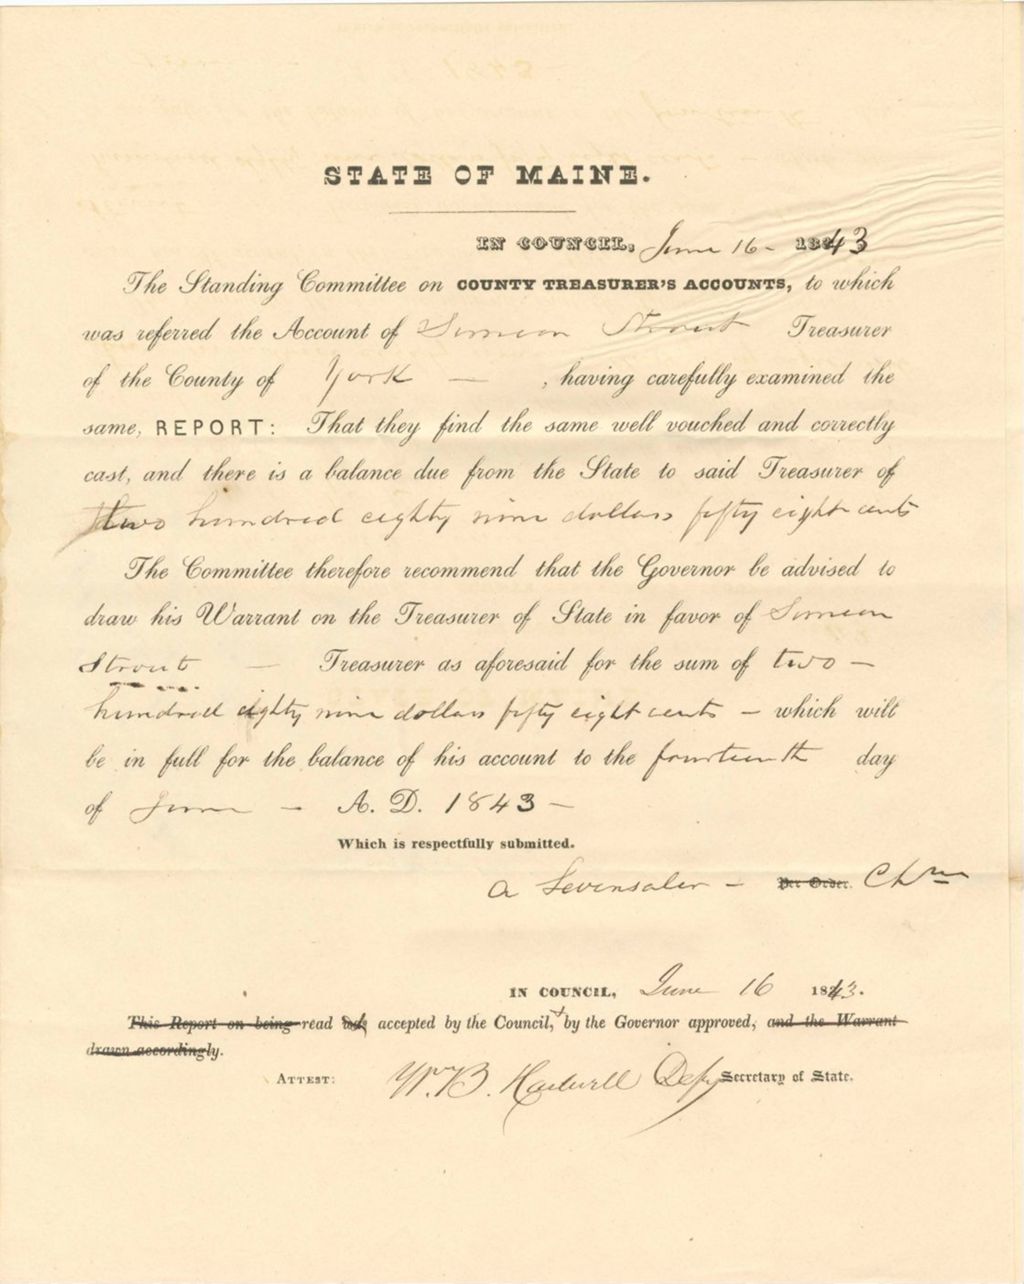 STATE OF MAINE.
IN COUNCIL, June 16 - 1843
The Standing Committee on COUNTY TREASURER'S ACCOUNTS, to which
was referred the Account of Simeon Strout Treasurer
of the County of York — , having carefully examined the
same, REPORT: That they find the same well vouched and correctly
cast, and there is a balance due from the State to said Treasurer of
two hundred eighty nine dollars fifty eight cents
The Committee therefore recommend that the Governor be advised to
draw his Warrant on the Treasurer of State in favor of Simeon
Strout — Treasurer as aforesaid for the sum of two —
hundred eighty nine dollars fifty eight cents — which will
be in full for the balance of his account to the fourteenth day
of June — A. D. 1843 —
Which is respectfully submitted.
A Levensaler — Per Order. Chm
IN COUNCIL, June 16 1843.
This Report on being read accepted by the Council, & by the Governor approved, and the Warrant
drawn accordingly.
ATTEST: Wm. B. Hartwell Depy Secretary of State.